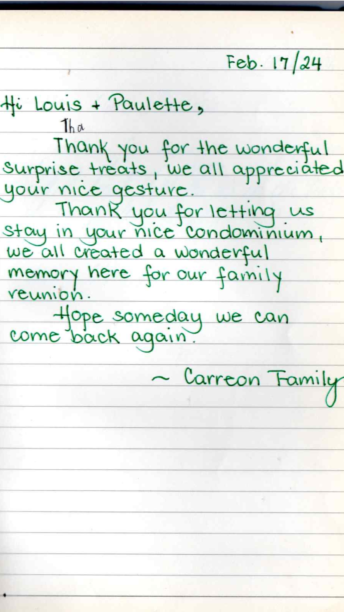 Feb. 17/24
Hi Louis + Paulette,
Tha
Thank you for the wonderful
surprise treats, we all appreciated
your nice gesture.
Thank you for letting us
stay in your nice condominium,
we all created a wonderful
memory here for our family
reunion.
Hope someday we can
come back again.
~ Carreon Family